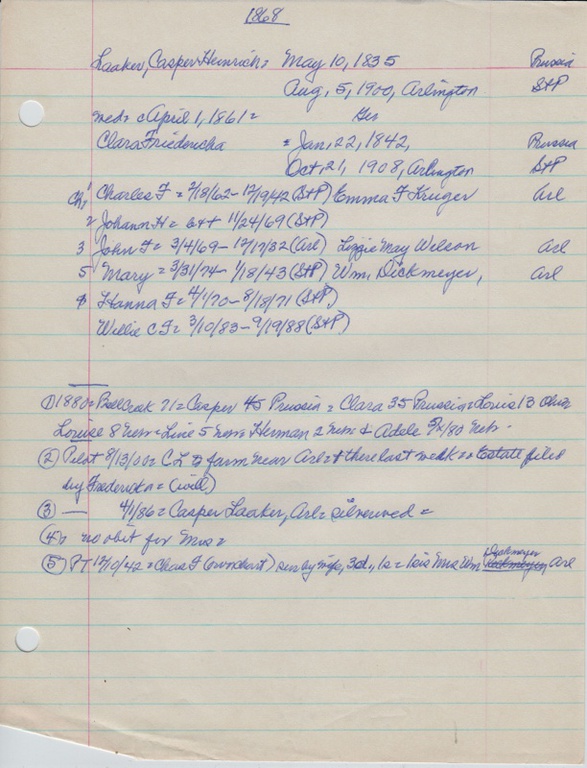 1868
Laaker, Casper Heinrich = May 10, 1835 Prussia
Aug, 5, 1900, Arlington StP
med = c April 1, 1861 = Ger
Clara Friedericha = Jan, 22, 1842, Prussia
Oct, 21, 1908, Arlington StP
Ch: 1 Charles F = 2/18/62 - 12/9/42 (StP) Emma F Kruger Arl
2 Johann H = b + 11/24/69 (StP)
3 John F = 3/4/69 - 12/17/32 (Arl) Lizzie May Wilson Arl
5 Mary = 3/31/74 - 1/18/43 (StP) Wm. Dickmeyer, Arl
Hanna F = 4/1/70 - 8/18/71 (StP)
Willie C F = 3/10/83 - 9/19/88 (StP)
① 1880 = Bell Creek 71 = Casper 45 Prussia = Clara 35 Prussia = Louis 13 Ohio
Louise 8 Neb = Line 5 Neb = Herman 2 Neb & Adele /80 Neb -
② Pilot 8/13/00 = C L farm near Arl = there last week = Estate filed
by Fredericka = (will)
③ — 4/1/86 = Casper Laaker, Arl = silver wed =
④ no obit for Mrs =
⑤ PT 12/10/42 = Chas F sur by wife, 3d, 1s = 1sis Mrs Wm Dickmeyer Arl